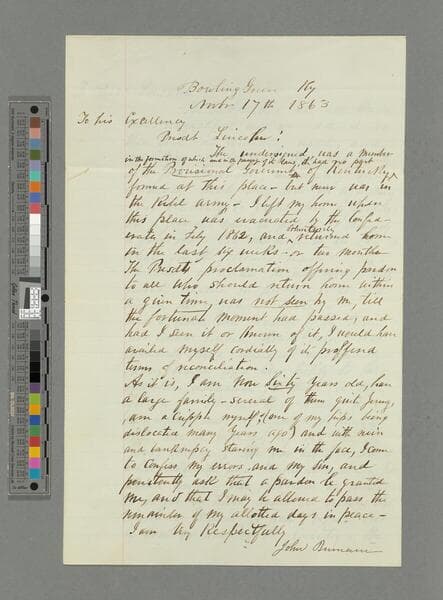 Bowling Green Ky
Novbr 17th 1863
To his Excellency
Presdt Lincoln!
The undersigned was a member
in the formation of which and in the passage of its laws, he had no part
of the Provisional Governmt of Kentucky,
formed at this place - but never was in
the Rebel army - I left my home upon
this place was evacuated by the confed
erate in Feby 1862, and voluntarily returned home
in the last six weeks - or two months
The Presdts proclamation offering pardon
to all who should return home within
a given time, was not seen by me, till
the fortunate moment had passed, and
had I seen it or known of it, I would have
availed myself cordially of its proffered
terms of reconciliation.
As it is, I am now Sixty years old, have
a large family - several of them quite young,
am a cripple myself, (one of my hips being
dislocated many years ago) and with ruin
and bankruptcy staring me in the face, I come
to confess my errors, and my sin, and
penitently ask that a pardon be granted
me, and that I may be allowed to pass the
remainder of my allotted days in peace -
I am Very Respectfully
John Burnam